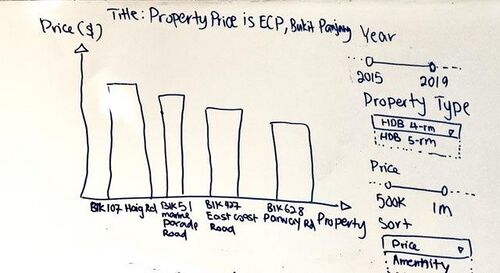 Title: Property Price is ECP, Bukit Panjang
Price ($)
Year
2015 2019
Property Type
HDB 4-rm
HDB 5-rm
Price
500k 1m
Sort
Price
Amenhity
Blk 107 Haig Rd
Blk 51
marine
Parade
Road
Blk 927
East coast
Road
Blk 628
Parkway Rd
Property